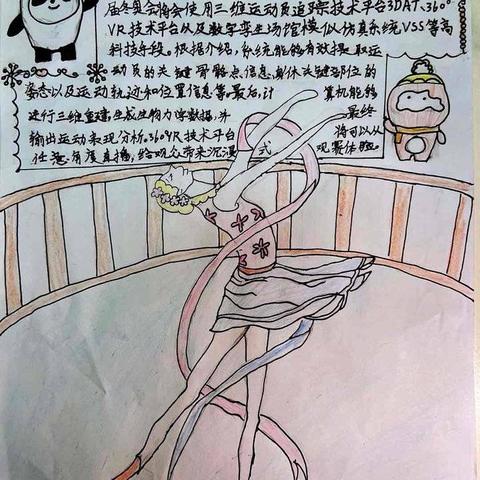 届冬奥会将会使用三维运动员追踪技术平台3DAT、360°
VR技术平台以及数字孪生场馆模似仿真系统VSS等高
科技手段。根据介绍,系统能够有效提取运
动员的关键骨骼点信息,身体关键部位的
姿态以及运动轨迹和位置信息等,最后,计算机能够
进行三维重建,生成生物力学数据,并最终
输出运动表现分析。360VR技术平台将可以从
任意角度直播,给观众带来沉浸式观赛体验。